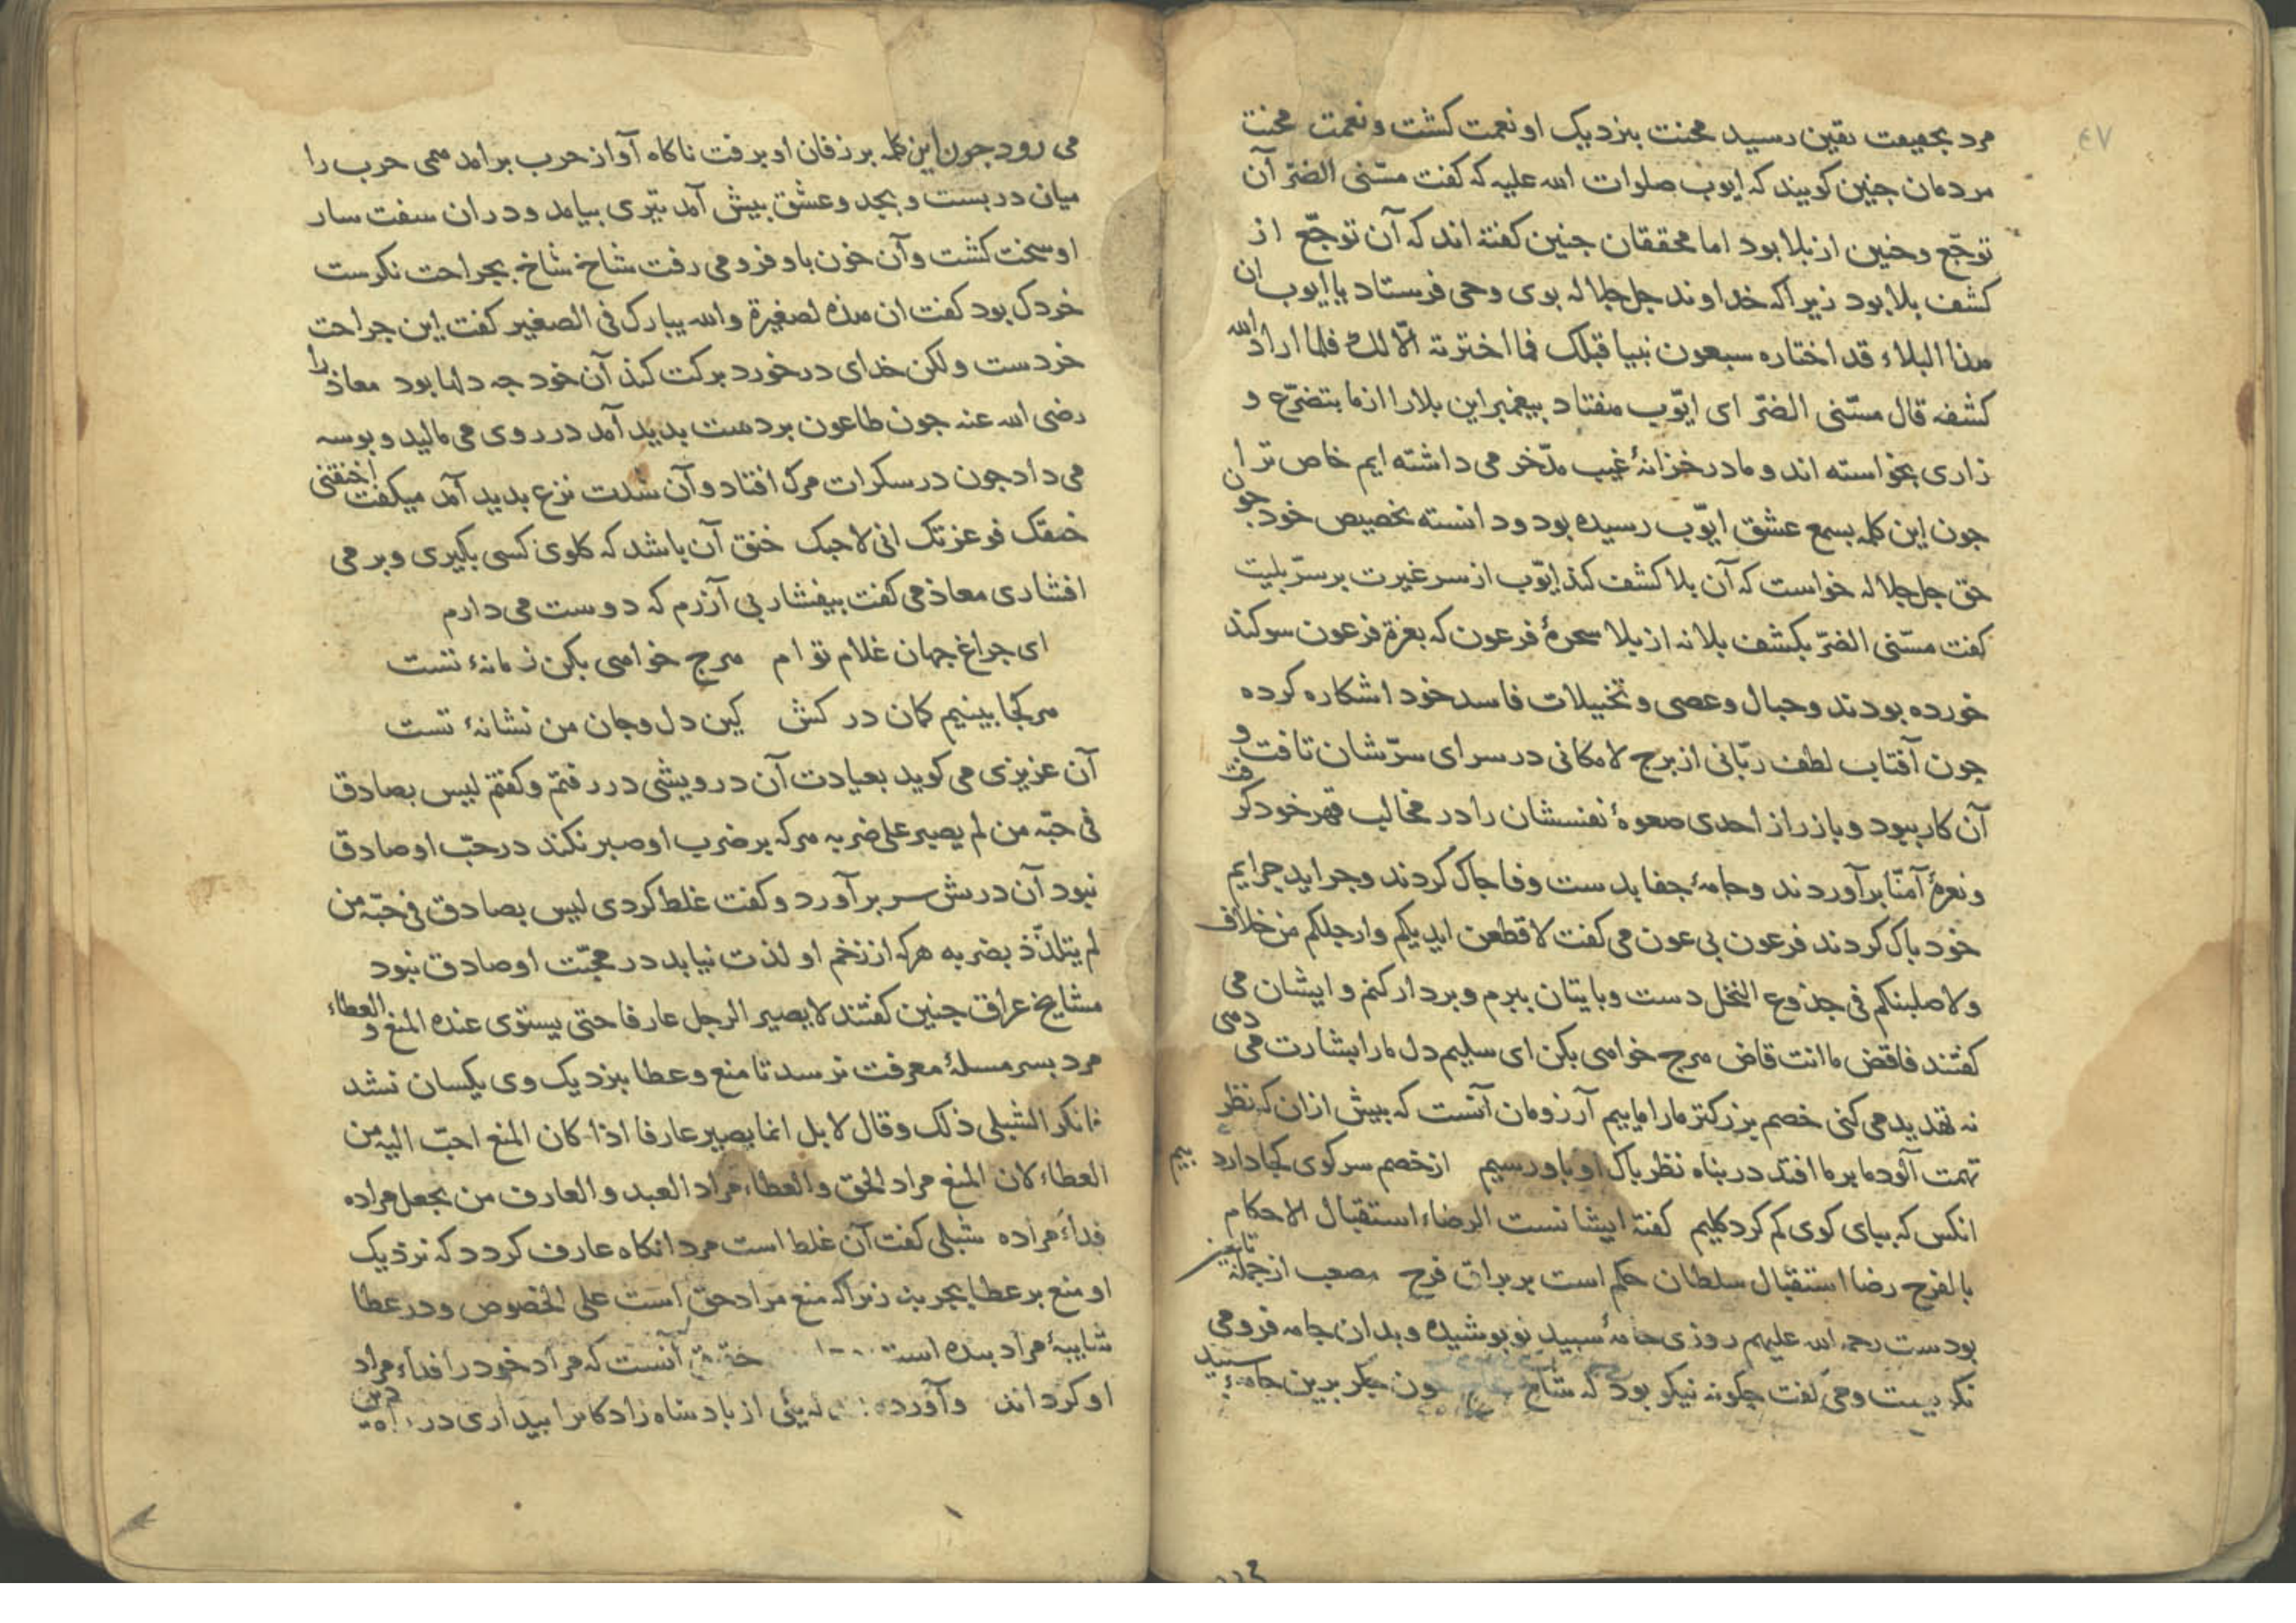 ٤٧
مرد بحقیقت یقین رسید محنت بنزدیک او نعمت کشت و نعمت محنت
مردمان جنین کویند که ایوب صلوات الله علیه که کفت مسّنی الضرّ آن
توجّع و حنین از بلا بود اما محققان جنین کفته اند که آن توجّع از
کشف بلا بود زیرا که خداوند جل جلاله بوی وحی فرستاد یا ایوب ان
هذا البلاء قد اختاره سبعون نبیا قبلک فما اخترته الّا لک فلما اراد الله
کشفه قال مسّنی الضرّ ای ایوّب هفتاد بیغمبر این بلا را از ما بتضرّع و
زاری بخواسته اند و ما در خزانهٔ غیب مدّخر می داشته ایم خاص ترا
جون این کلمه بسمع عشق ایوّب رسیده بود و دانسته تخصیص خود جون
حق جل جلاله خواست که آن بلا کشف کند ایوّب از سر غیرت بر سرّ بلیت
کفت مسّنی الضرّ بکشف بلا نه از بلا سحرهٔ فرعون که بعزة فرعون سوکند
خورده بودند و حبال و عصی و تخییلات فاسد خود اشکاره کرده
جون آفتاب لطف ربّانی از برج لامکانی در سرای سرّشان تافت و
آن کار ببود و باز راز احدی صعوهٔ نفسشان را در مخالب قهر خود کرفت
و نعرهٔ آمنّا برآوردند و جامهٔ جفا بدست وفا جاک کردند و جراید جرایم
خود باک کردند فرعون بی عون می کفت لاقطعن ایدیکم وارجلکم من خلاف
ولاصلبنکم فی جذوع النخل دست و بایتان ببرم و بردار کنم و ایشان می
کفتند فاقض ما انت قاض هرج خواهی بکن ای سلیم دل ما را بشارت می دهی
نه تهدید می کنی خصم بزرکتر ما را ماییم آرزومان آنست که بیش از ان که نظر
تهمت آلود ما بر ما افتد در بناه نظر باک او باو رسیم از خصم سر کوی کجا دارد بیم
انکس که ببای کوی کم کرد کلیم کفتهٔ ایشانست الرضاء استقبال الاحکام
بالفرح رضا استقبال سلطان حکم است بر براق فرح مصعب از جملهٔ تابعین
بودست رحمه الله علیهم روزی جامهٔ سبید نو بوشیده و بدان جامه فرو می
نکریست و می کفت جکونه نیکو بود که شاخ خون جکر برین جامهٔ سبید
می رود جون این کلمه بر زفان او برفت ناکاه آواز حرب برامد همی حرب را
میان دربست و بجد و عشق بیش آمد تیری بیامد و در ان سفت سار
او سخت کشت و آن خون باو فرو می رفت شاخ شاخ بجراحت نکرست
خردک بود کفت ان هذه لصغیرة والله یبارک فی الصغیر کفت این جراحت
خردست و لکن خدای در خورد برکت کند آن خود جه دلها بود معاذ را
رضی الله عنه جون طاعون بر دست بدید آمد در روی می مالید و بوسه
می داد جون در سکرات مرک افتاد و آن شدت نزع بدید آمد میکفت اخنقنی
خنقک فوعزتک انی لاحبک خنق آن باشد که کلوی کسی بکیری و بر می
افشاری معاذ می کفت بیفشار بی آزرم که دوست می دارم
ای جراغ جهان غلام تو ام هرج خواهی بکن زمانهٔ تست
هر کجا بینیم کمان در کش کین دل و جان من نشانهٔ تست
آن عزیزی می کوید بعیادت آن درویشی در رفتم و کفتم لیس بصادق
فی حبّه من لم یصبر علی ضربه هر که بر ضرب او صبر نکند در حبّ او صادق
نبود آن درش سر برآورد و کفت غلط کردی لیس بصادق فی حبّه من
لم یتلذّذ بضربه هرکه از زخم او لذت نیابد در محبّت او صادق نبود
مشایخ عراق جنین کفتند لا یصیر الرجل عارفا حتی یستوی عنده المنع و العطاء
مرد بسر مسلهٔ معرفت نرسد تا منع و عطا بنزدیک وی یکسان نشد
فانکر الشبلی ذلک وقال لا بل انما یصیر عارفا اذا کان المنع احبّ الیه من
العطاء لان المنع مراد الحق والعطاء مراد العبد والعارف من یجعل مراده
فداء مراده شبلی کفت آن غلط است مرد انکاه عارف کردد که نزدیک
او منع بر عطا بجربد زیرا که منع مراد حق است علی الخصوص و در عطا
شایبهٔ مراد بنده است آنست که مراد خود را فداء مراد
او کرداند و آورده از بادشاه زادکانرا بیداری در